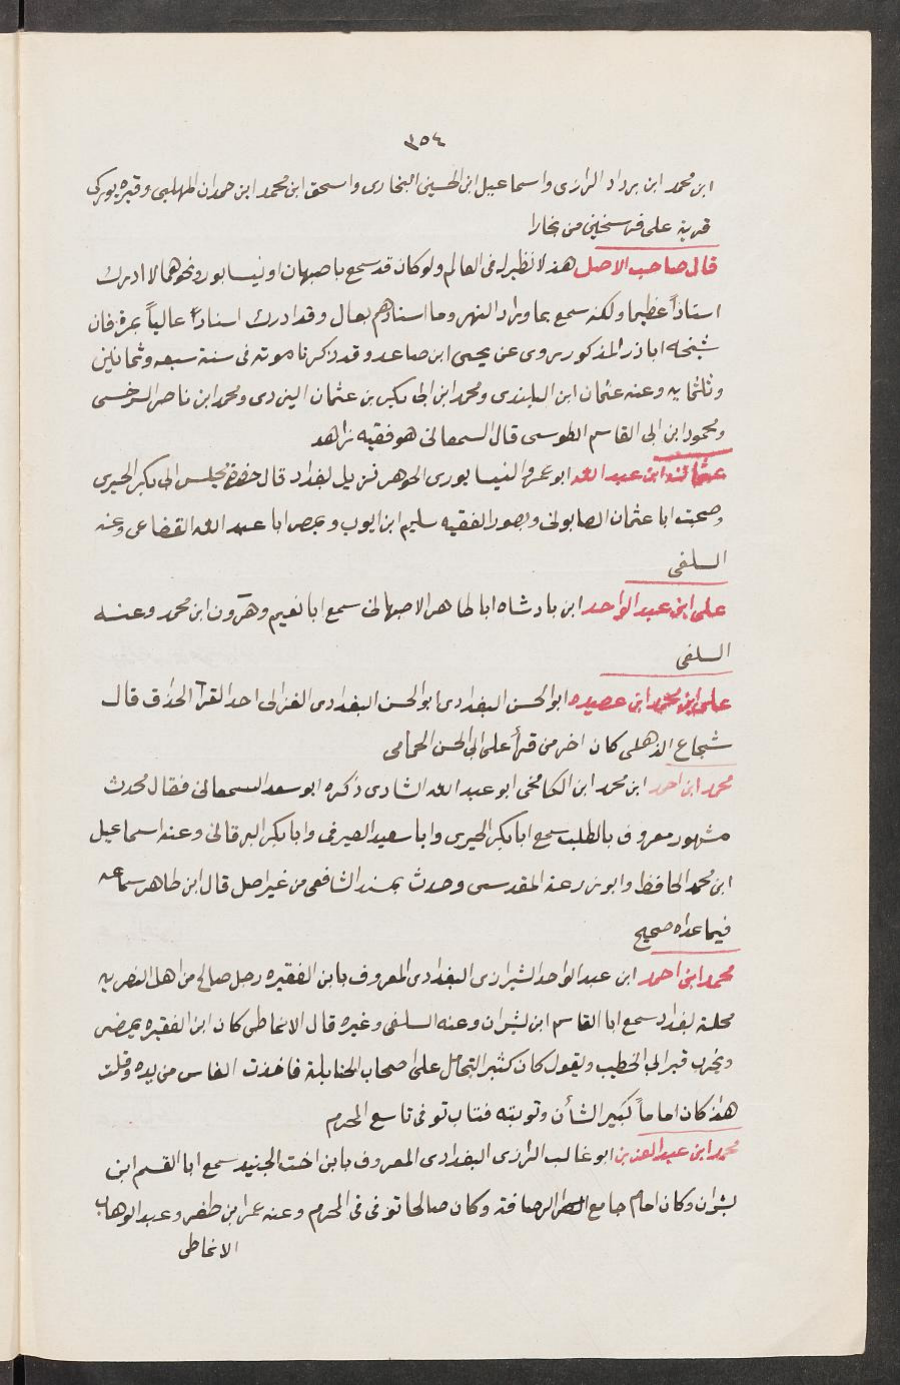 ٣٥٤
ابن محمد ابن يزداد الرازى واسماعيل ابن الحسين البخارى واسحق ابن محمد ابن حمدان المهلبى وقبره بوركى
قرية على فرسخين من بخارا
قال صاحب الاصل هذا لا نظير له فى العالم ولو كان قد سمع باصبهان او نيسابور ونحوهما لادرك
اسناداً عظيما ولكنه سمع بما وراء النهر وما اسنادهم بعال وقد ادرك اسناداً عالياً بمرة فان
شيخه ابا ذر المذكور يروى عن يحيى ابن صاعد وقد ذكرنا موته فى سنة سبعه وثمانين
وثلثمايه وعنه عثمان ابن البلندى ومحمد ابن ابى بكر بن عثمان البزدى ومحمد ابن ناصر السرخسى
ومحمود ابن ابى القاسم الطوسى قال السمعانى هو فقيه زاهد
ابن عبد الله ابو عمرو النيسابورى الجوهر نزيل بغداد قال حضرت مجلس ابى بكر الحيرى
وصحبت ابا عثمان الصابونى وبصور الفقيه سليم ابن ايوب وبمصر ابا عبد الله القضاعى وعنه
السلفى
على ابن عبد الواحد ابن بادشاه ابا طاهر الاصبهانى سمع ابا نعيم وهرون ابن محمد وعنه
السلفى
على ابن محمد ابن عصيده ابو الحسن البغدادى ابو الحسن البغدادى الغزالى احد القرآ الحذاق قال
شجاع الذهلى كان اخر من قرأ على ابى الحسن الحمامى
محمد ابن احمد ابن محمد ابن الكامخى ابو عبد الله الشادى ذكره ابو سعد السمعانى فقال محدث
مشهور معروف بالطلب سمع ابا بكر الحيرى وابا سعيد الصيرفى وابا بكر البرقانى وعنه اسماعيل
ابن محمد الحافظ وابو زرعة المقدسى وحدث بمسند الشافعى من غير اصل قال ابن طاهر سماعه
فيما عداه صحيح
محمد ابن احمد ابن عبد الواحد الشيرازى البغدادى المعروف بابن الفقيره رجل صالح من اهل النصريه
محلة بغداد سمع ابا القاسم ابن بشران وعنه السلفى وغيره قال الانماطى كان ابن الفقيره يمضى
ويخرب قبر ابى الخطيب ويقول كان كثير التحامل على اصحاب الحنابلة فاخذت الفاس من يده وقلت
هذا كان اماماً كبير الشأن وتوبته فتاب توفى تاسع المحرم
محمد ابن عبد العزيز ابو غالب الرازى البغدادى المعروف بابن اخت الجنيد سمع ابا القسم ابن
بشران وكان امام جامع الرصافة وكان صالحا توفى فى المحرم وعنه عمر ابن ظفر وعبد الوهاب
الانماطى